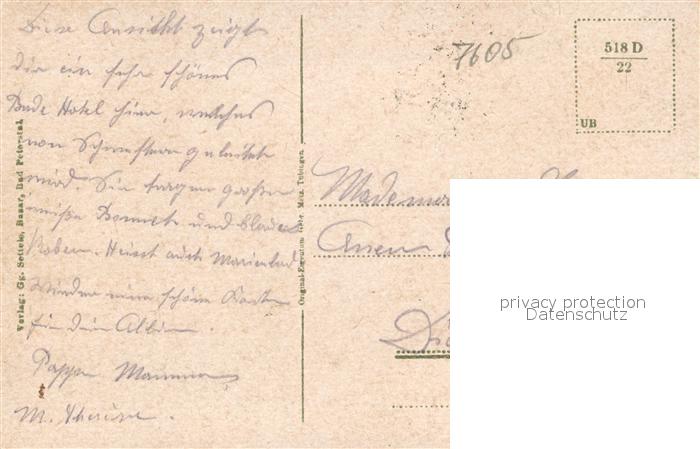 Diese Ansicht zeigt
dir ein sehr schönes
Bade Hotel hier, welches
von Schwestern geleitet
wird. Sie tragen große
weiße und blaue
Roben. Heisst auch Marienbad
Wieder eine schöne Karte
für dein Album.
Pappa Mamma
M. Therese.
Verlag: Gg. Settele, Bazar, Bad Peterstal.
Original-Eigentum Gebr. Metz, Tübingen.
7605
518 D
22
UB
privacy protection
Datenschutz